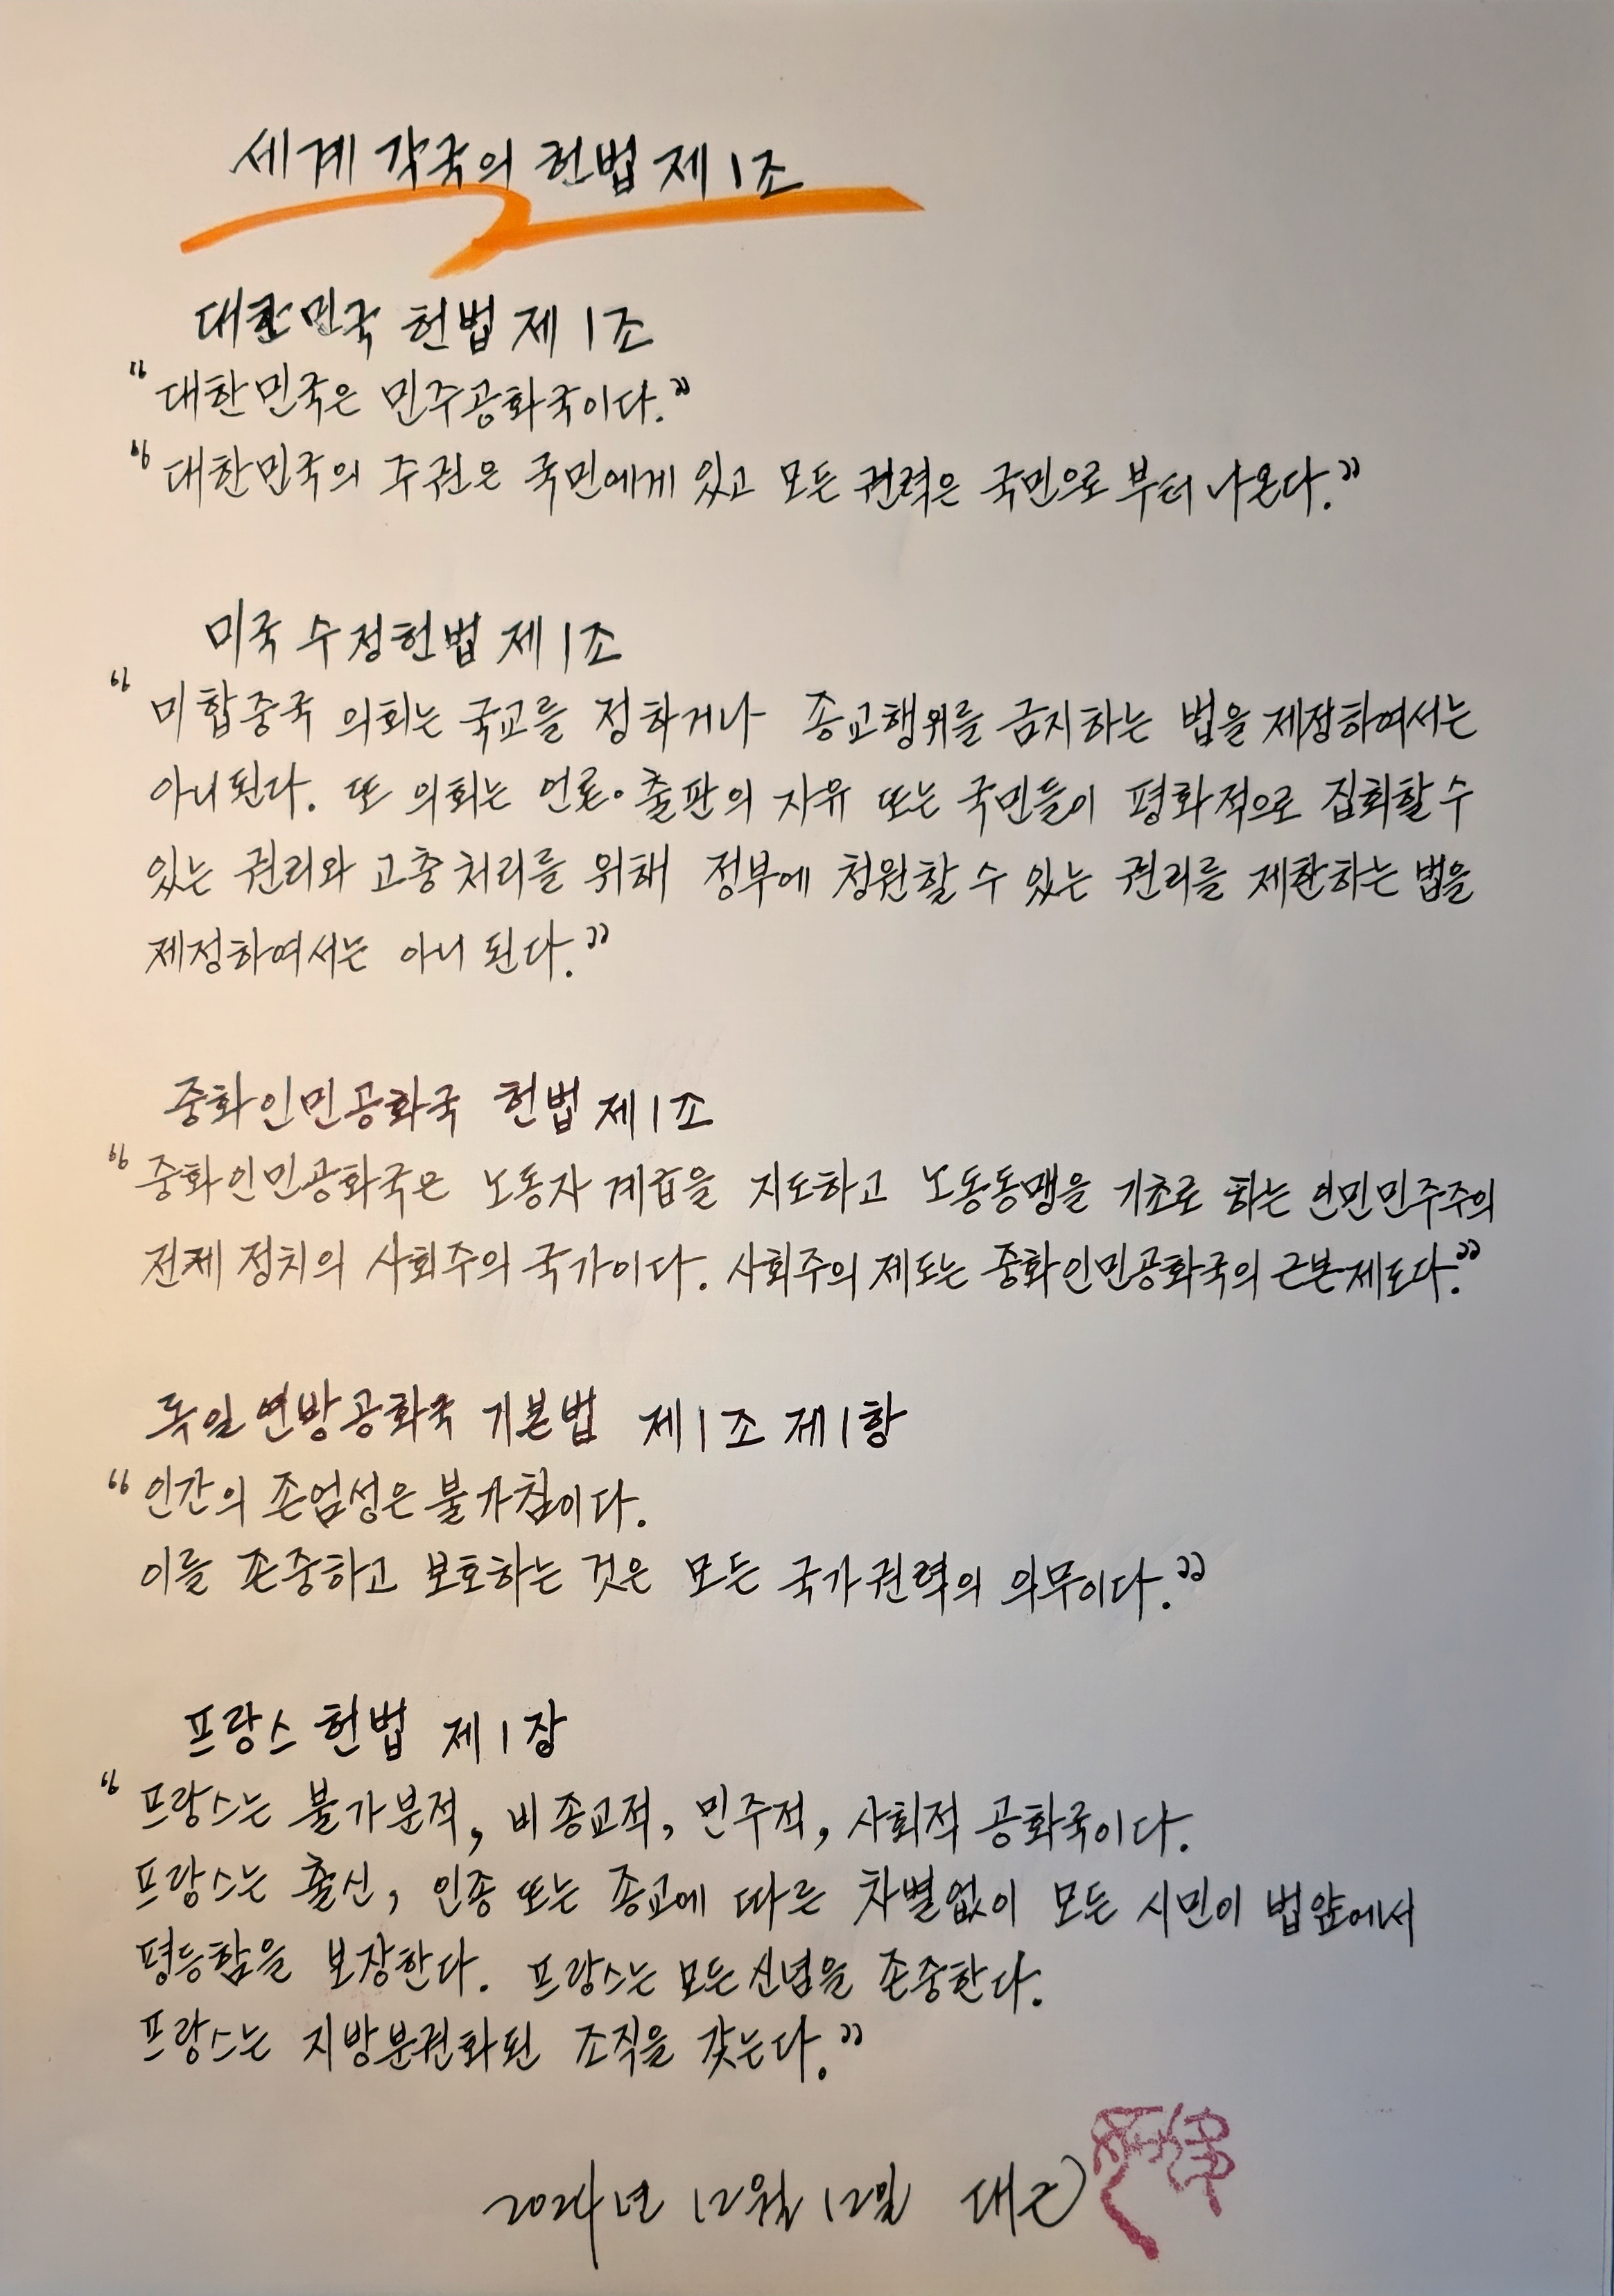 세계 각국의 헌법 제1조
대한민국 헌법 제1조
“대한민국은 민주공화국이다.”
“대한민국의 주권은 국민에게 있고 모든 권력은 국민으로부터 나온다.”
미국 수정헌법 제1조
“미합중국 의회는 국교를 정하거나 종교행위를 금지하는 법을 제정하여서는
아니된다. 또 의회는 언론·출판의 자유 또는 국민들이 평화적으로 집회할 수
있는 권리와 고충처리를 위해 정부에 청원할 수 있는 권리를 제한하는 법을
제정하여서는 아니 된다.”
중화인민공화국 헌법 제1조
“중화인민공화국은 노동자 계급을 지도하고 노동동맹을 기초로 하는 인민민주주의
전제 정치의 사회주의 국가이다. 사회주의 제도는 중화인민공화국의 근본제도다.”
독일연방공화국 기본법 제1조 제1항
“인간의 존엄성은 불가침이다.
이를 존중하고 보호하는 것은 모든 국가권력의 의무이다.”
프랑스 헌법 제1장
“프랑스는 불가분적, 비종교적, 민주적, 사회적 공화국이다.
프랑스는 출신, 인종 또는 종교에 따른 차별없이 모든 시민이 법앞에서
평등함을 보장한다. 프랑스는 모든 신념을 존중한다.
프랑스는 지방분권화된 조직을 갖는다.”
2024년 12월 12일 대근